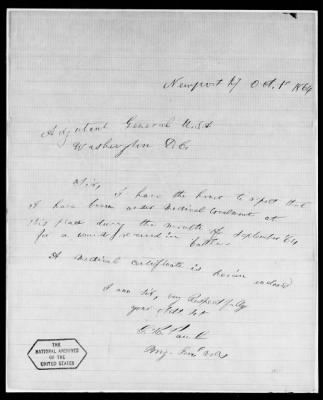 Newport Ky Oct. 1st 1864
Adjutant General U.S.A
Washington D.C.
Sir, I have the honor to report that
I have been under medical treatment at
this place during the month of September 1864
for a wound received in battle.
A medical certificate is herein enclosed
I am Sir, very Respectfully
your Obt Svt
Brig. Genl Vols
THE
NATIONAL ARCHIVES
OF THE
UNITED STATES